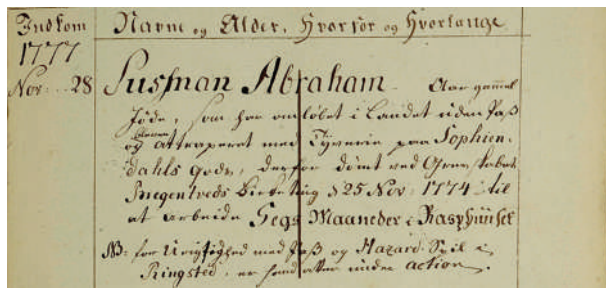 Indkom Navne og Alder, Hvorfor og Hvorlænge
1777
Nov: 28 Susman Abraham Aar gammel
Jøde, som har omløbet i Landet uden Paß
og attraperet med Tyverie paa Sophien-
dahls Gods, derfor dømt ved Grevskabet
Bregentveds Birketing d 25 Nov: 1774 til
at arbeide Sex Maaneder i Rasphuuset
NB: for Urigtighed med Paß og Hazard-Spil i
Ringsted, er hand atter under action.